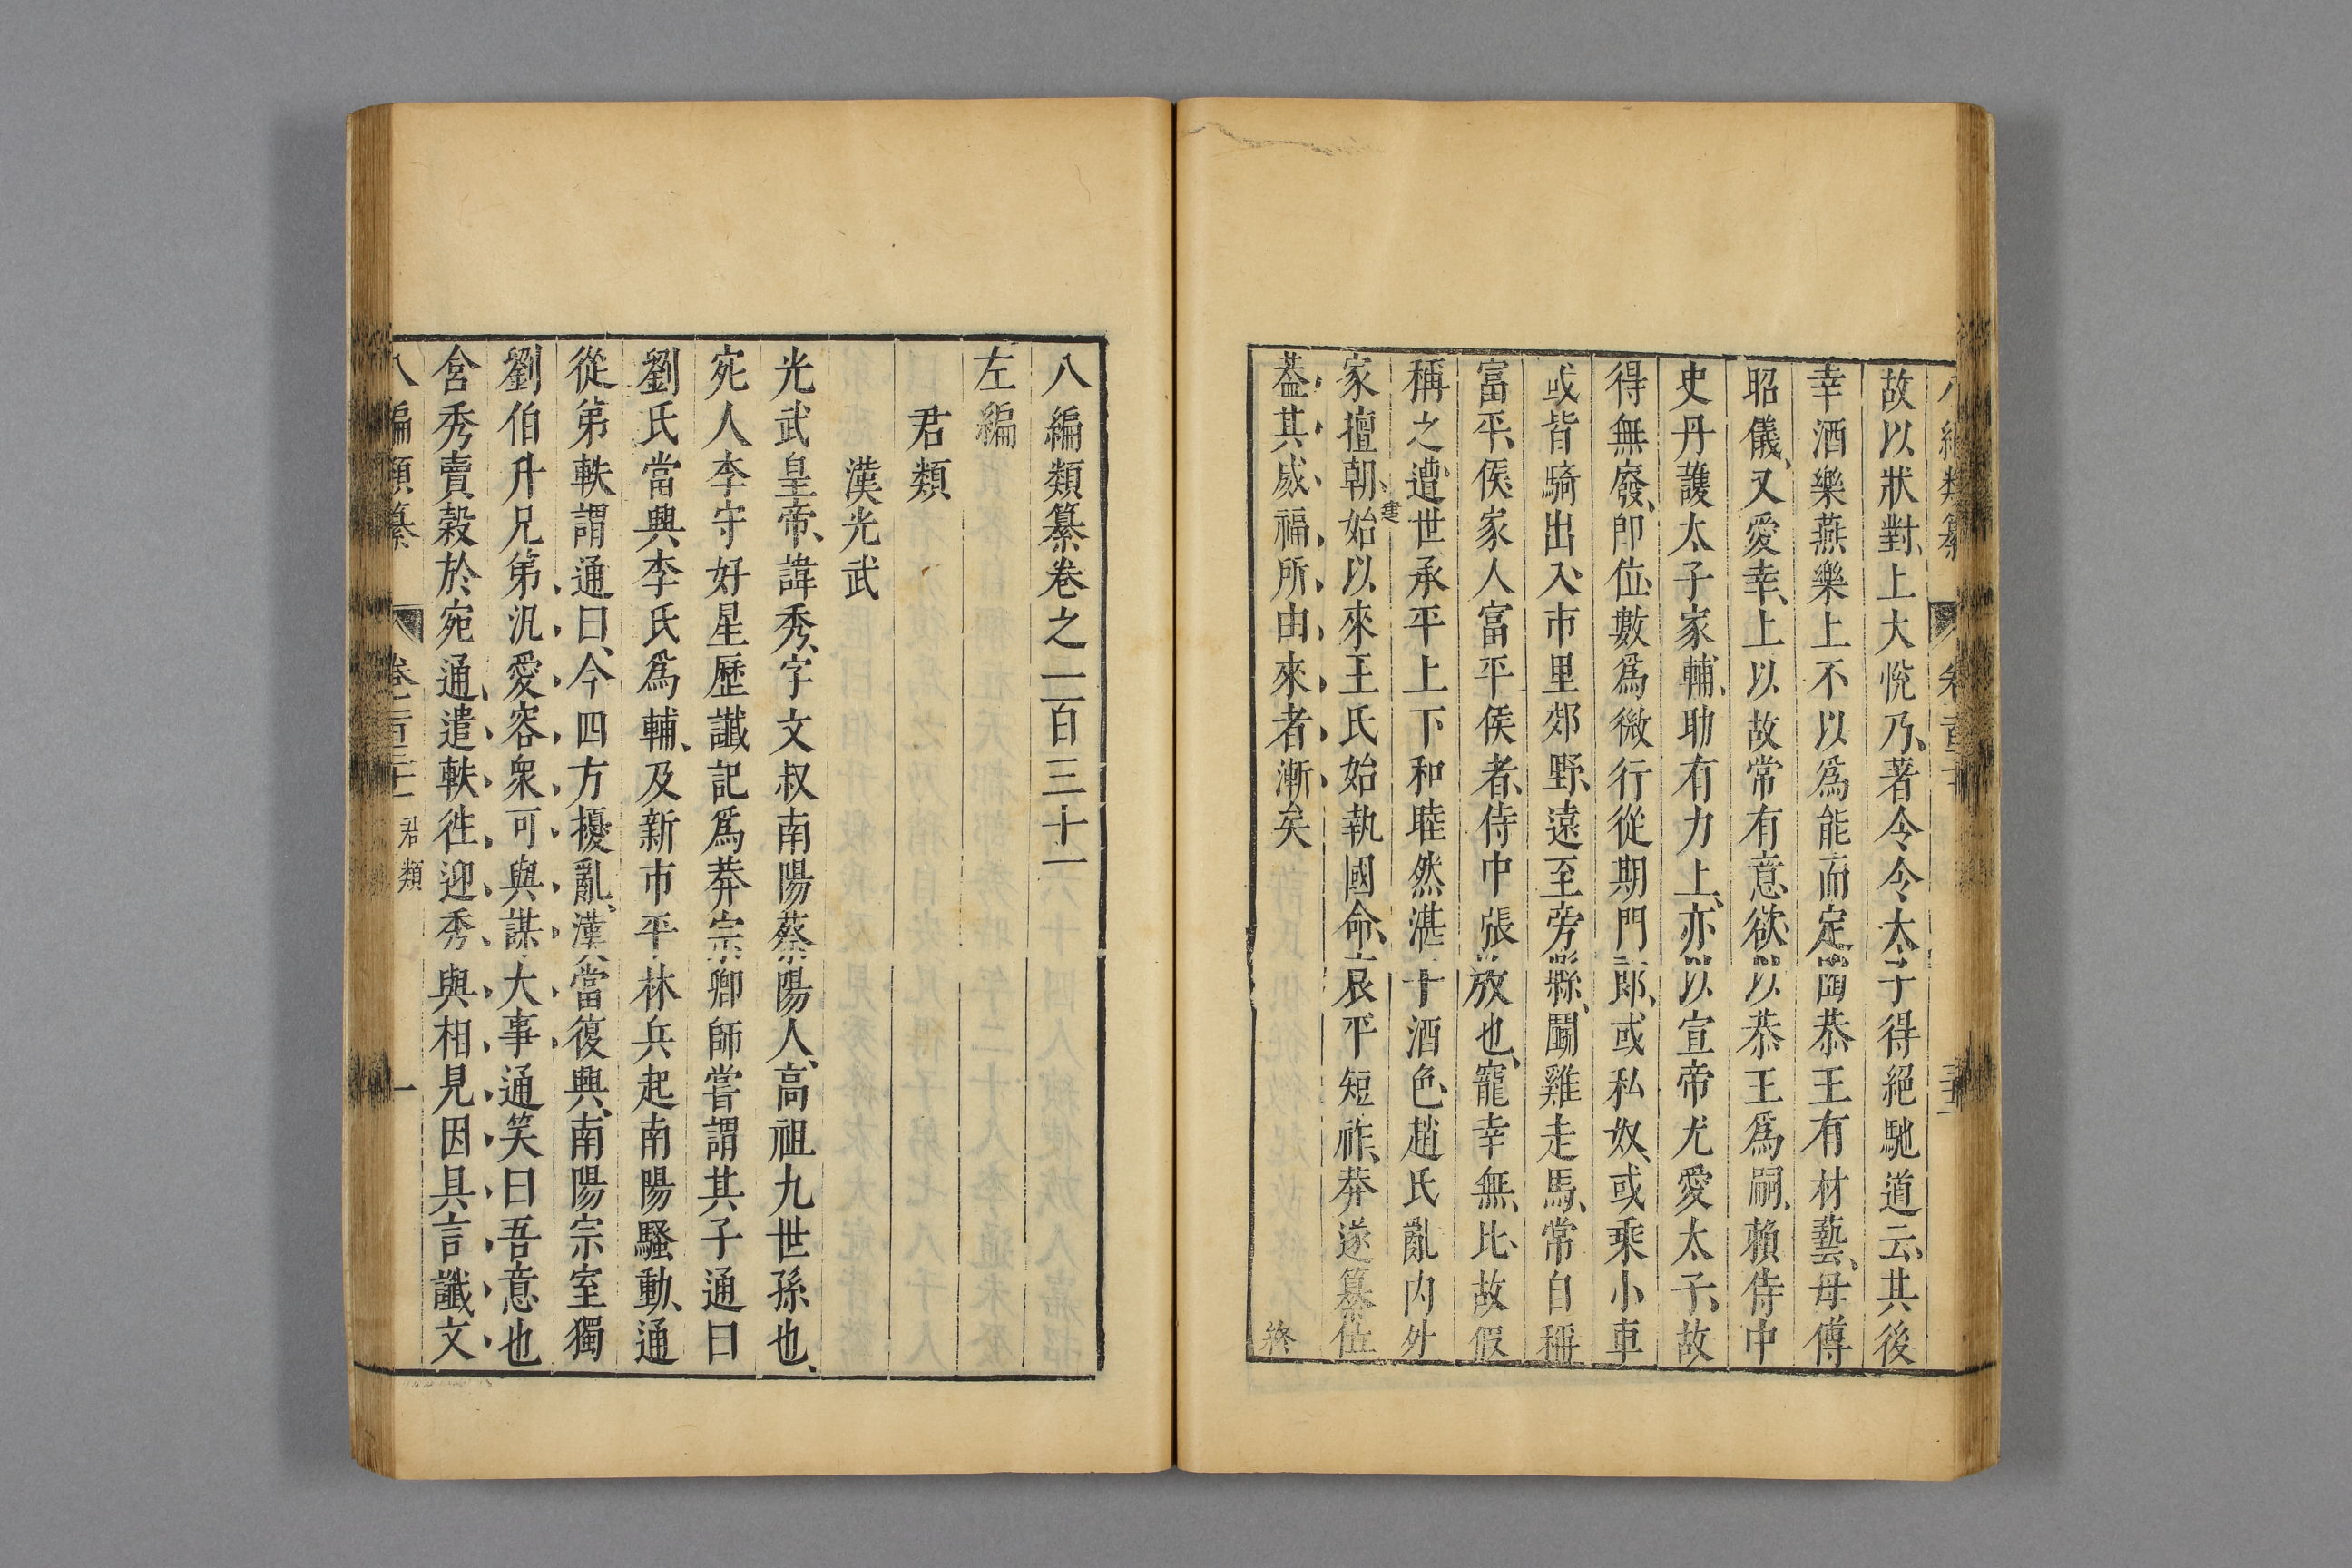 故以狀對上大悅乃著令令太子得絕馳道云其後
幸酒樂燕樂上不以爲能而定陶恭王有材藝母傅
昭儀又愛幸上以故常有意欲以恭王爲嗣賴侍中
史丹護太子家輔助有力上亦以宣帝尤愛太子故
得無廢卽位數爲微行從期門郎或私奴或乘小車
或皆騎出入市里郊野遠至旁縣鬭雞走馬常自稱
富平侯家人富平侯者侍中張放也寵幸無比故假
稱之遭世承平上下和睦然湛于酒色趙氏亂內外
家擅朝建始以來王氏始執國命哀平短祚莽遂篡位
葢其威福所由來者漸矣
終
八編類纂卷之二百三十一
左編
君類
漢光武
光武皇帝諱秀字文叔南陽蔡陽人高祖九世孫也
宛人李守好星歷讖記爲莽宗卿師嘗謂其子通曰
劉氏當興李氏爲輔及新市平林兵起南陽騷動通
從弟軼謂通曰今四方擾亂漢當復興南陽宗室獨
劉伯升兄弟汎愛容衆可與謀大事通笑曰吾意也
會秀賣穀於宛通遣軼徃迎秀與相見因具言讖文
八編類纂
卷二百三十一
君類
一